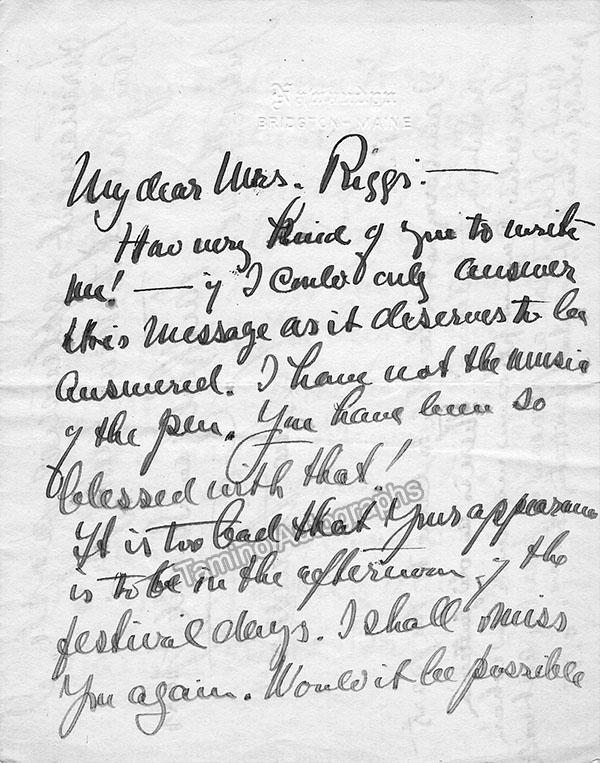 Normandon
BRIDGTON - MAINE
My dear Mrs. Riggs: —
How very kind of you to write
me! — if I could only answer
this message as it deserves to be
answered. I have not the music
of the pen. You have been so
blessed with that!
It is too bad that your appearance
is to be in the afternoon of the
festival days. I shall miss
you again. Would it be possible
Taming Autographs